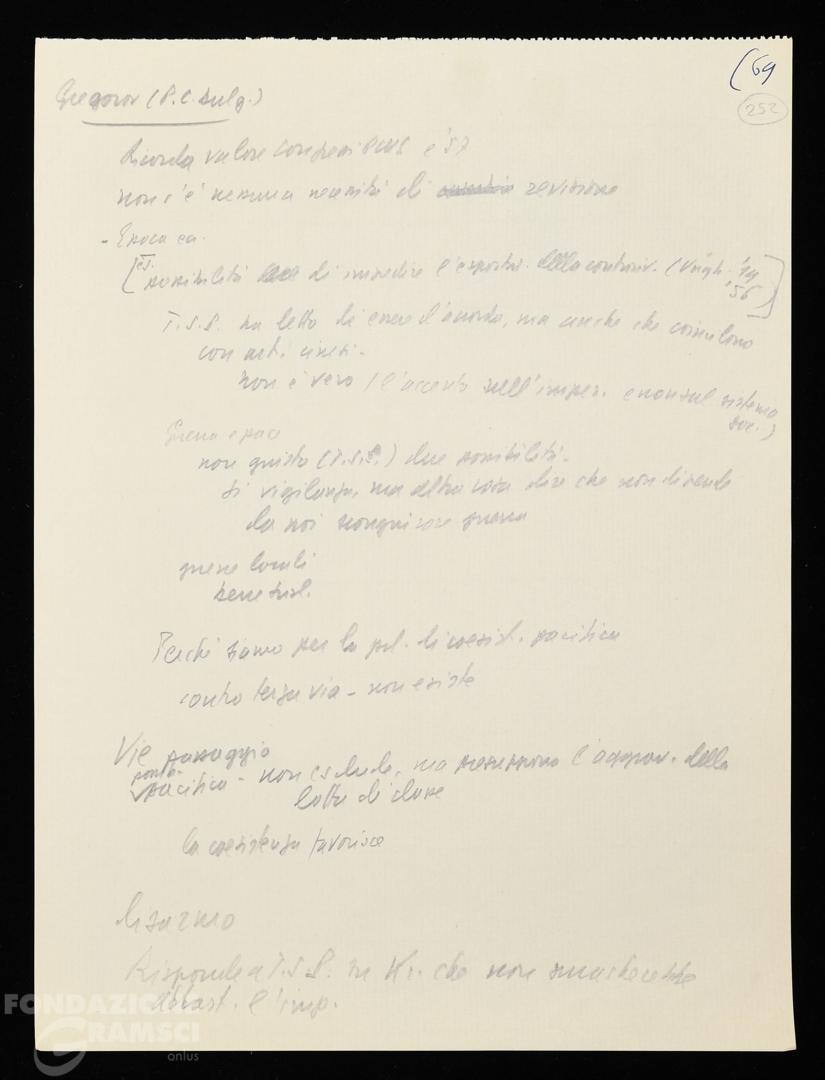 (69
252
Gregorov (P.C. bulg.)
Ricorda valore congressi PCUS e '57
non c'è nessuna necessità di revisione
- Epoca ca.
[es. possibilità di impedire l'esportaz. della controriv. (Ungh. '19 '56)]
T.S.P. ha detto di essere d'accordo, ma anche che coincidono
con art. cinesi -
non è vero (l'accento sull'imper. e non sul sistema
soc.)
Guerra e pace
non giusto (T.S.P.) due possibilità -
Sì vigilanza, ma altra cosa dire che non dipende
da noi scongiurare guerra
guerre locali
Perché siamo per la pol. di coesist. pacifica
contro terza via - non esiste
Vie passaggio
pacifica - non esclude, ma presuppone l'aggrav. della
lotta di classe
la coesistenza favorisce
disarmo
Risponde a T.S.P. su Kr. che non smaschererebbe
abbast. l'imp.
FONDAZIONE
GRAMSCI
onlus